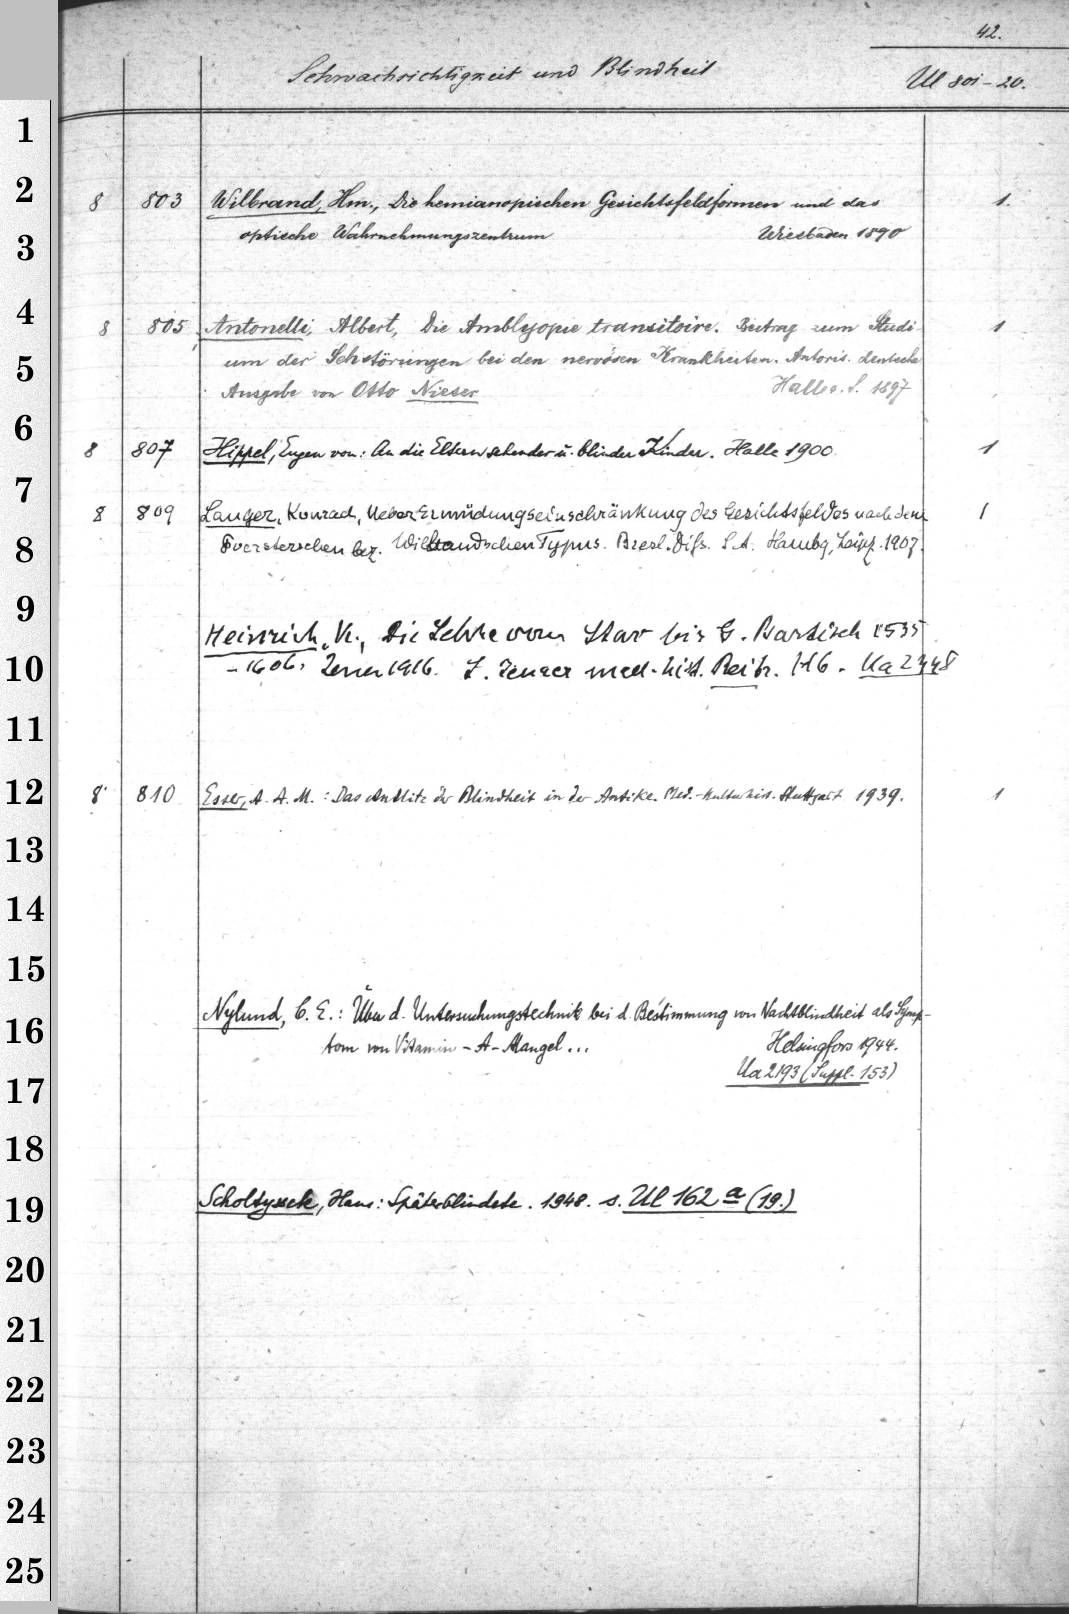 42.
Schwachsichtigkeit und Blindheit
Ul 801-20.
1
2
8 803 Wilbrand, Hm., Die hemianopischen Gesichtsfeldformen und das 1.
3
optische Wahrnehmungszentrum Wiesbaden 1890
4
8 805 Antonelli, Albert, Die Amblyopie transitoire. Beitrag zum Studi- 1
5
um der Sehstörungen bei den nervösen Krankheiten. Autoris. deutsche
Ausgabe von Otto Nieser Halle a. S. 1897
6
8 807 Hippel, Eugen von: An die Eltern sehender u. blinder Kinder. Halle 1900 1
7
8 809 Langer, Konrad, Ueber Ermüdungseinschränkung des Gesichtsfeldes nach dem 1
8
Foersterschen bez. Wilbrandschen Typus. Bresl. Diss. S.A. Hambg, Leipz. 1907.
9
Heinrich, K., Die Lehre vom Star bis G. Bartisch 1535
10
-1606. Jena 1916. J. Jenaer med.-hist. Beitr. H6. Ua 2448
11
12
8 810 Esser, A. A. M.: Das Antlitz der Blindheit in der Antike. Med.-Kulturhist. Stuttgart 1939. 1
13
14
15
Nylund, C. E.: Über d. Untersuchungstechnik bei d. Bestimmung von Nachtblindheit als Symp-
16
tom von Vitamin-A-Mangel ... Helsingfors 1944.
Ua 2193 (Suppl. 153)
17
18
19
Scholtyssek, Hans: Späterblindete. 1948. s. Ul 162 a (19.)
20
21
22
23
24
25